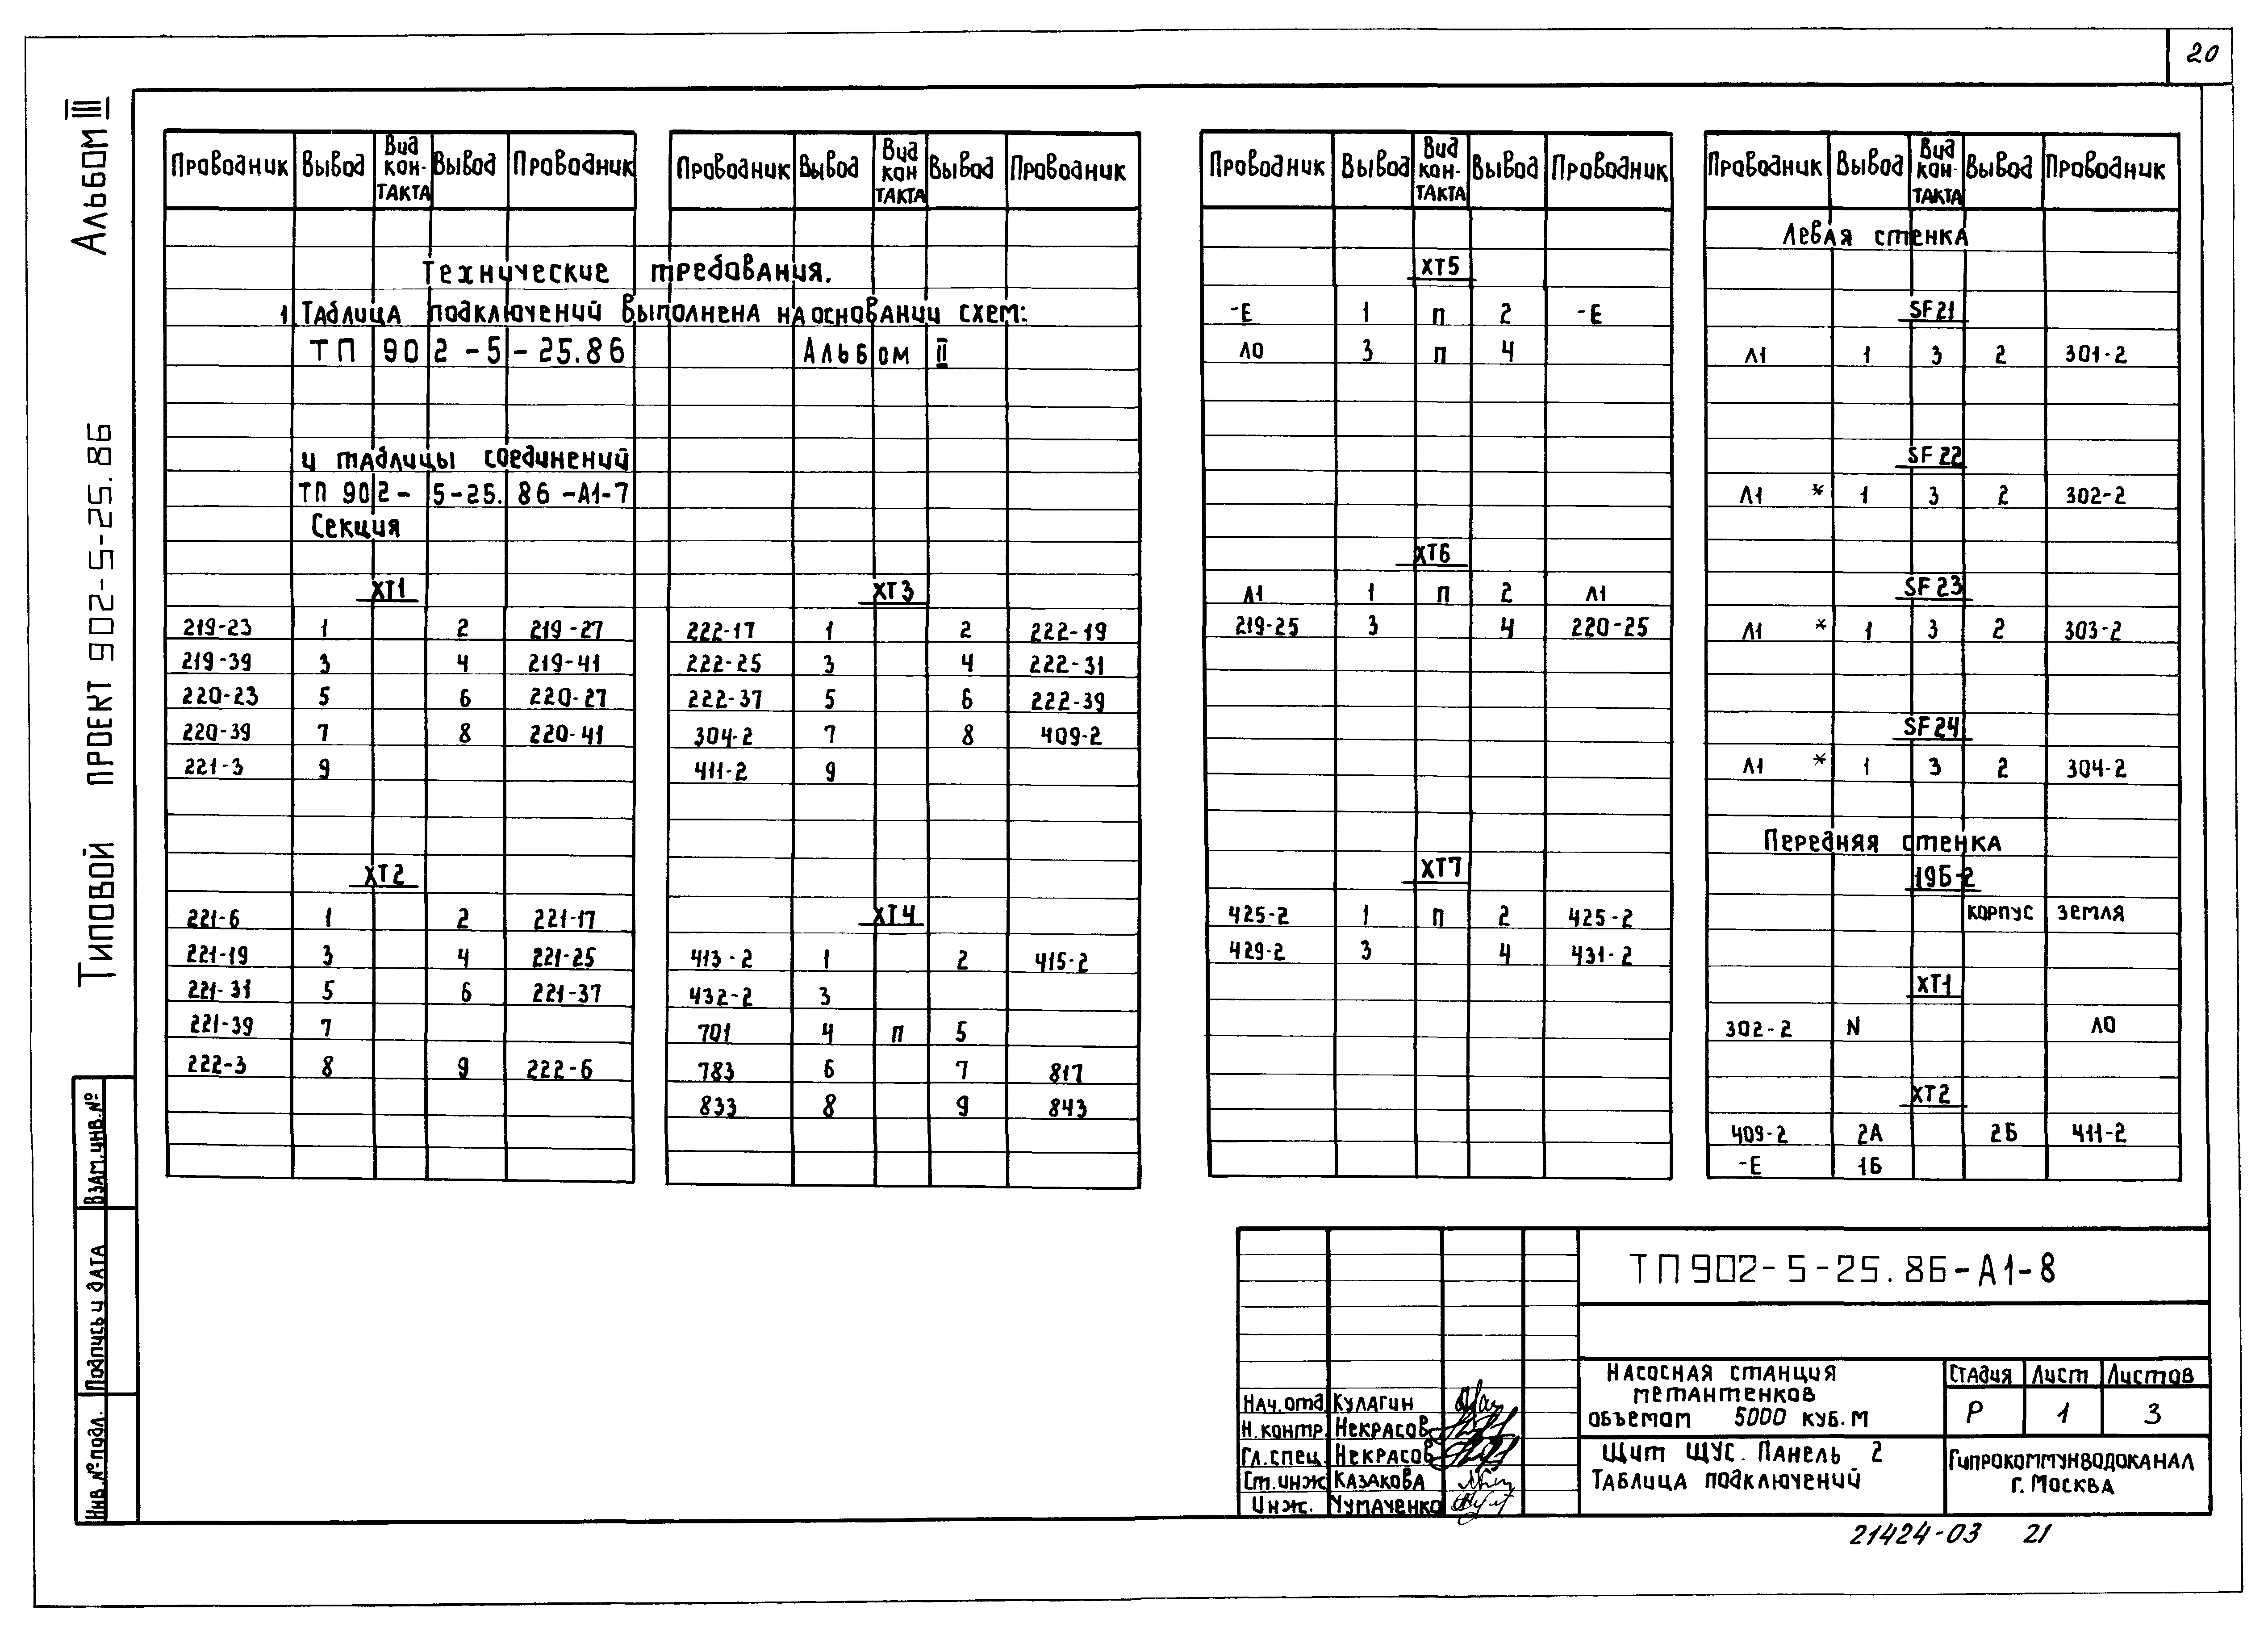 20
Альбом III
Типовой проект 902-5-25.86
Проводник Вывод Вид кон-такта Вывод Проводник
Технические требования.
1. Таблица подключений выполнена на основании схем:
ТП 902-5-25.86 Альбом II
и таблицы соединений
ТП 902-5-25.86-А1-7
Секция
ХТ1
219-23 1 2 219-27
219-39 3 4 219-41
220-23 5 6 220-27
220-39 7 8 220-41
221-3 9
ХТ2
221-6 1 2 221-17
221-19 3 4 221-25
221-31 5 6 221-37
221-39 7
222-3 8 9 222-6
Проводник Вывод Вид кон такта Вывод Проводник
ХТ3
222-17 1 2 222-19
222-25 3 4 222-31
222-37 5 6 222-39
304-2 7 8 409-2
411-2 9
ХТ4
413-2 1 2 415-2
432-2 3
701 4 П 5
783 6 7 817
833 8 9 843
Проводник Вывод Вид кон-такта Вывод Проводник
ХТ5
-Е 1 П 2 -Е
Л0 3 П 4
ХТ6
Л1 1 П 2 Л1
219-25 3 4 220-25
ХТ7
425-2 1 П 2 425-2
429-2 3 4 431-2
Проводник Вывод Вид кон-такта Вывод Проводник
Левая стенка
SF21
Л1 1 З 2 301-2
SF22
Л1 * 1 З 2 302-2
SF23
Л1 * 1 З 2 303-2
SF24
Л1 * 1 З 2 304-2
Передняя стенка
19Б-2
корпус земля
ХТ1
302-2 N Л0
ХТ2
409-2 2А 2Б 411-2
-Е 1Б
Взам. инв. №
Подпись и дата
Инв № подл.
ТП902-5-25.86-А1-8
Насосная станция
метантенков
объемом 5000 куб.м
Стадия Лист Листов
Р 1 3
Щит ЩУС. Панель 2
Таблица подключений
Гипрокоммунводоканал
г. Москва
Нач. отд. Кулагин
Н. контр. Некрасов
Гл. спец. Некрасов
Ст. инж. Казакова
Инж. Чумаченко
21424-03 21